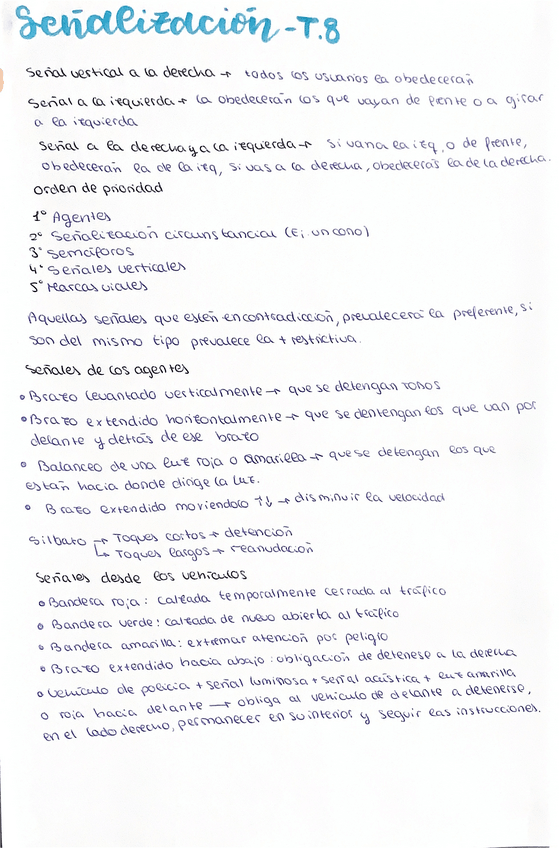 Señalización - T.8
Señal vertical a la derecha → todos los usuarios la obedecerán
Señal a la izquierda → la obedecerán los que vayan de frente o a girar
a la izquierda
Señal a la derecha y a la izquierda → si van a la izq. o de frente,
obedecerán la de la izq, si vas a la derecha, obedecerás la de la derecha.
Orden de prioridad
1º Agentes
2º Señalización circunstancial (Ej un cono)
3º Semáforos
4º Señales verticales
5º Marcas viales
Aquellas señales que estén en contradicción, prevalecerá la preferente, si
son del mismo tipo prevalece la + restrictiva.
Señales de los agentes
• Brazo levantado verticalmente → que se detengan TODOS
• Brazo extendido horizontalmente → que se dentengan los que van por
delante y detrás de ese brazo
• Balanceo de una luz roja o amarilla → que se detengan los que
están hacia donde dirige la luz.
• Brazo extendido moviendolo ↑↓ → disminuir la velocidad
Silbato → Toques cortos → detención
↳ Toques largos → reanudación
Señales desde los vehículos
• Bandera roja: calzada temporalmente cerrada al tráfico
• Bandera verde: calzada de nuevo abierta al tráfico
• Bandera amarilla: extremar atención por peligro
• Brazo extendido hacia abajo: obligación de detenese a la derecha
• Vehículo de policía + señal luminosa + señal acústica + luz amarilla
o roja hacia delante → obliga al vehículo de delante a detenerse,
en el lado derecho, permanecer en su interior y seguir las instrucciones.